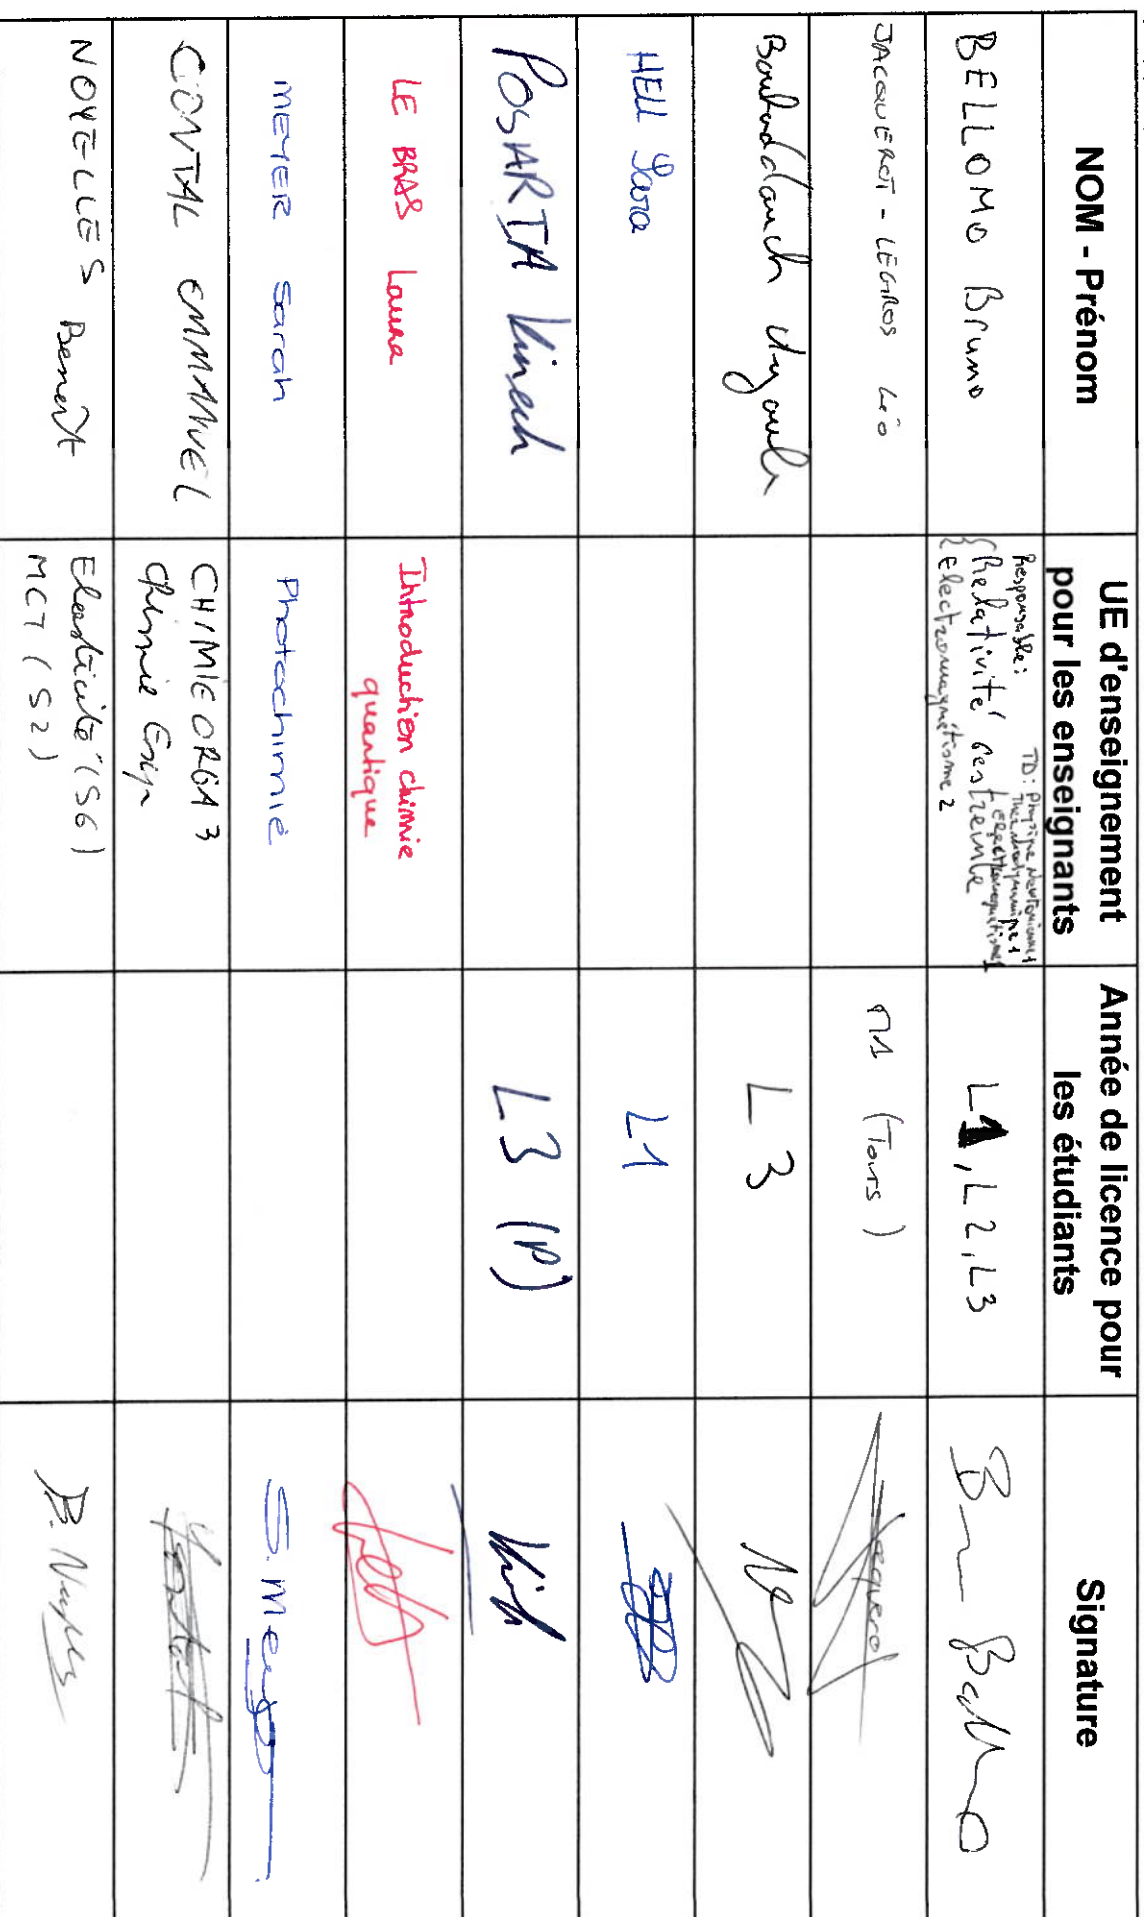 NOM - Prénom
UE d'enseignement
pour les enseignants
Année de licence pour
les étudiants
Signature
BELLOMO Bruno
Responsable:
{Relativité restreinte
Electromagnétisme 2
TD: Physique Newtonienne 1
Thermodynamique 1
Electromagnétisme 1
L1, L2, L3
JACQUEROT - LEGROS Léo
M1 (Tours)
L3
HELL Sara
L1
POSARTA Kinech
L3 (P)
LE BRAS Laura
Introduction chimie
quantique
MEYER Sarah
Photochimie
S. Meyer
CONTAL EMMANUEL
CHIMIE ORGA 3
Chimie
NOYELLES Benoît
Elasticité (S6)
MCT (S2)
B. Noyelles